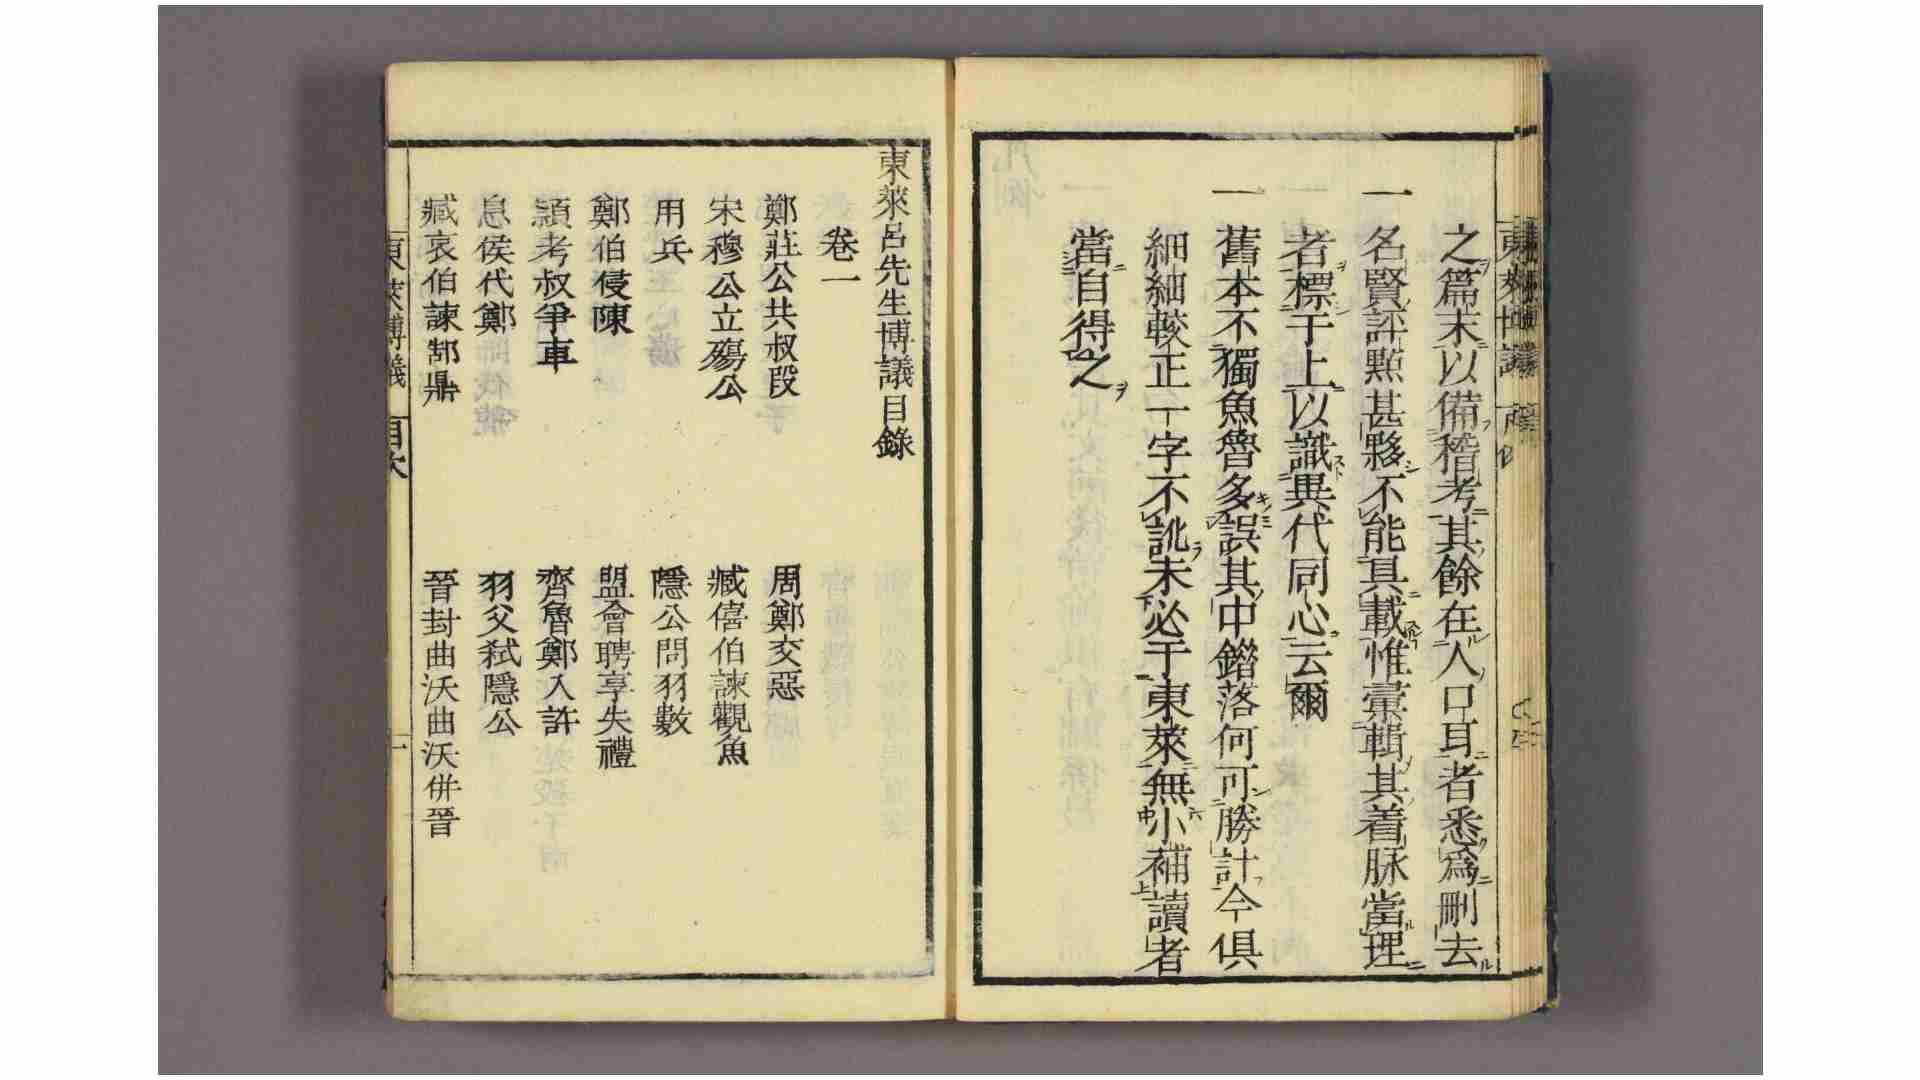 之篇末以備稽考其餘在人口耳者悉爲刪去
一名賢評點甚夥不能具載惟彙輯其着脉當理
者標于上以識異代同心云爾
一舊本不獨魚魯多誤其中錯落何可勝計今俱
細細較正一字不訛未必于東萊無小補讀者
當自得之
東萊呂先生博議目錄
卷一
鄭莊公共叔段 周鄭交惡
宋穆公立殤公 臧僖伯諫觀魚
用兵 隱公問羽數
鄭伯侵陳 盟會聘享失禮
潁考叔爭車 齊魯鄭入許
息侯伐鄭 羽父弒隱公
臧哀伯諫郜鼎 晉封曲沃曲沃併晉
東萊博議 目次 一